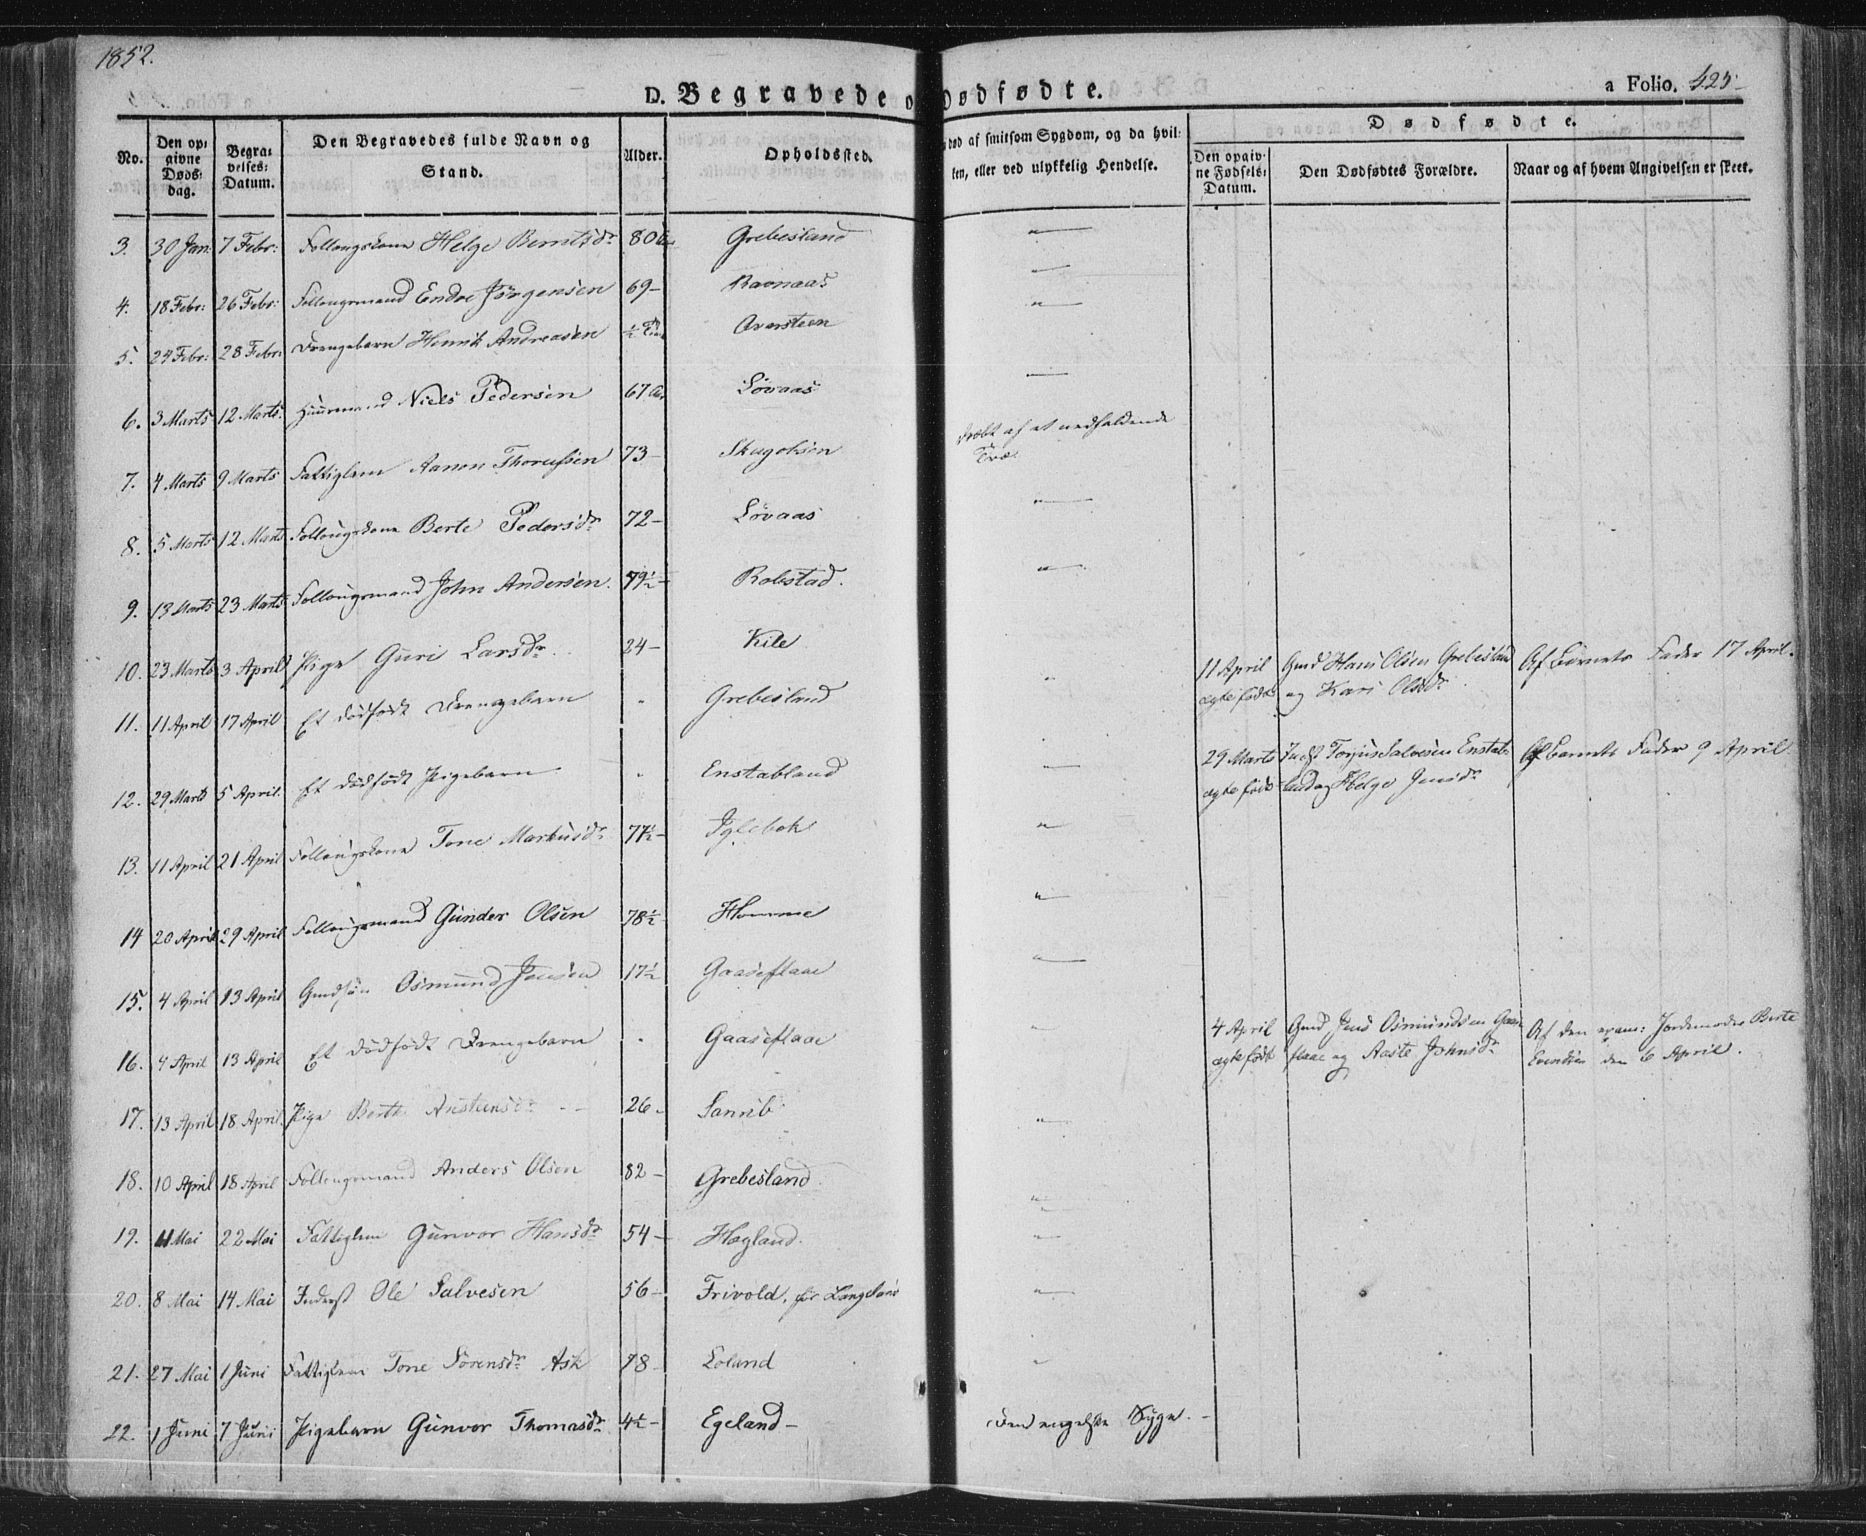 1852.
D. Begravede o Dødfødte.
a Folio. 425
No.
Den op=
givne
Døds=
dag.
Begra=
velses=
Datum.
Den Begravedes fulde Navn og
Stand.
Alder.
Opholdssted.
død af smitsom Sygdom, og da hvil=
ken, eller ved ulykkelig Hendelse.
Dødfødte.
Den opgiv=
ne Fødsels=
Datum.
Den Dødfødtes Forældre.
Naar og af hvem Angivelsen er skeet.
3. 30 Jan: 7 Febr: Follougskone Helge Berntsdr 80 Grebesland "
4. 18 Febr: 26 Febr: Follougsmand Endre Jörgensen 69 - Ravnaas "
5. 24 Febr: 28 Febr: Drengebarn Henrik Andreasen ½ Oversteen "
6. 3 Marts 12 Marts: Huusmand Niels Pedersen 67 Aar Lövaas
7. 4 Marts 9 Marts Fattiglem Aanon 73 - dræbt af et nedfaldende
Træ
8. 5 Marts 12 Marts Follougskone Berte Pedersdr 72 - Lövaas "
9. 13 Marts 23 Marts Follougsmand John Andersen. 79½ - Robstad. "
10. 23 Marts 3 April Pige Guri Larsdr 24 - Kile
11. 11 April 17 April Et dödfödt Drengebarn " Grebesland " 11 April Gmd Hans Olsen Grebesland Af Barnets Fader 17 April.
ægte födt og Kari Olsdr
12. 29 Marts 5 April. Et dödfödt Pigebarn " Enstabland " 29 Marts Indst Torjus Salvesen Enstab= Af Barnets Fader 9 April
ægte födt land og Helge Jensdr
13. 11 April 21 April Follougskone Tone Markusdr 77½ - Iglebek "
14 20 April 29 April Follougsmand Gunder Olsen 78½ Homme "
15. 4 April 13 April Gmdsön Osmund Jensen 17½ Gaaseflaae "
16. 4 April 13 April Et dödfödt Drengebarn " Gaaseflaae " 4 April Gmd Jens Osmundsen Gaase= Af den exam: Jordemoder Berte
ægte födt flaae og Aaste Johnsdr den 6 April.
17. 13 April 18 April Pige Berte 26 - "
18. 10 April 18 April Follougsmand Anders Olsen 82 - Grebesland "
19. 11 Mai 22 Mai Fattiglem Gunvor Hansdr 54 - Hægland. "
20. 8 Mai 14 Mai Inderst Ole Salvesen 56 - Frivold, "
21. 27 Mai 1 Juni Fattiglem Tone Sörensdr Ask 78 - Loland "
22. 1 Juni 7 Juni Pigebarn Gunvor Thomasdr 4½ - Egeland - Den engelske Syge. -